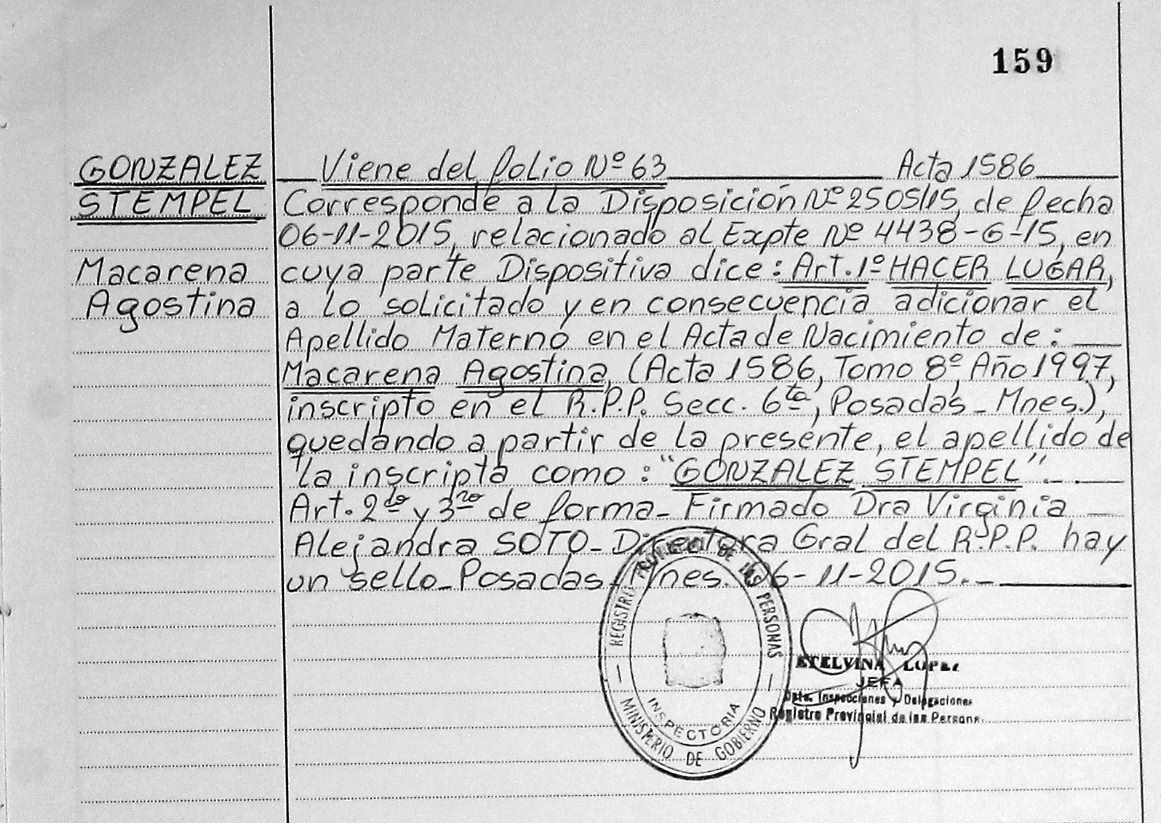 159
GONZALEZ
STEMPEL
Macarena
Agostina
Viene del folio Nº 63 Acta 1586
Corresponde a la Disposición Nº 2505/15, de fecha
06-11-2015, relacionado al Expte Nº 4438-G-15, en
cuya parte Dispositiva dice: Art. 1º HACER LUGAR,
a lo solicitado y en consecuencia adicionar el
Apellido Materno en el Acta de Nacimiento de:
Macarena Agostina, (Acta 1586, Tomo 8º Año 1997,
inscripto en el R.P.P. Secc. 6ta, Posadas - Mnes.),
quedando a partir de la presente, el apellido de
la inscripta como: "GONZALEZ STEMPEL".
Art. 2do y 3ro de forma - Firmado Dra Virginia
Alejandra SOTO - Directora Gral del R.P.P. hay
un sello - Posadas, Mnes. 06-11-2015. -
REGISTRO PROVINCIAL DE LAS PERSONAS
INSPECTORIA
MINISTERIO DE GOBIERNO
ETELVINA LOPEZ
JEFA
Dpto. Inspecciones y Delegaciones
Registro Provincial de las Persona